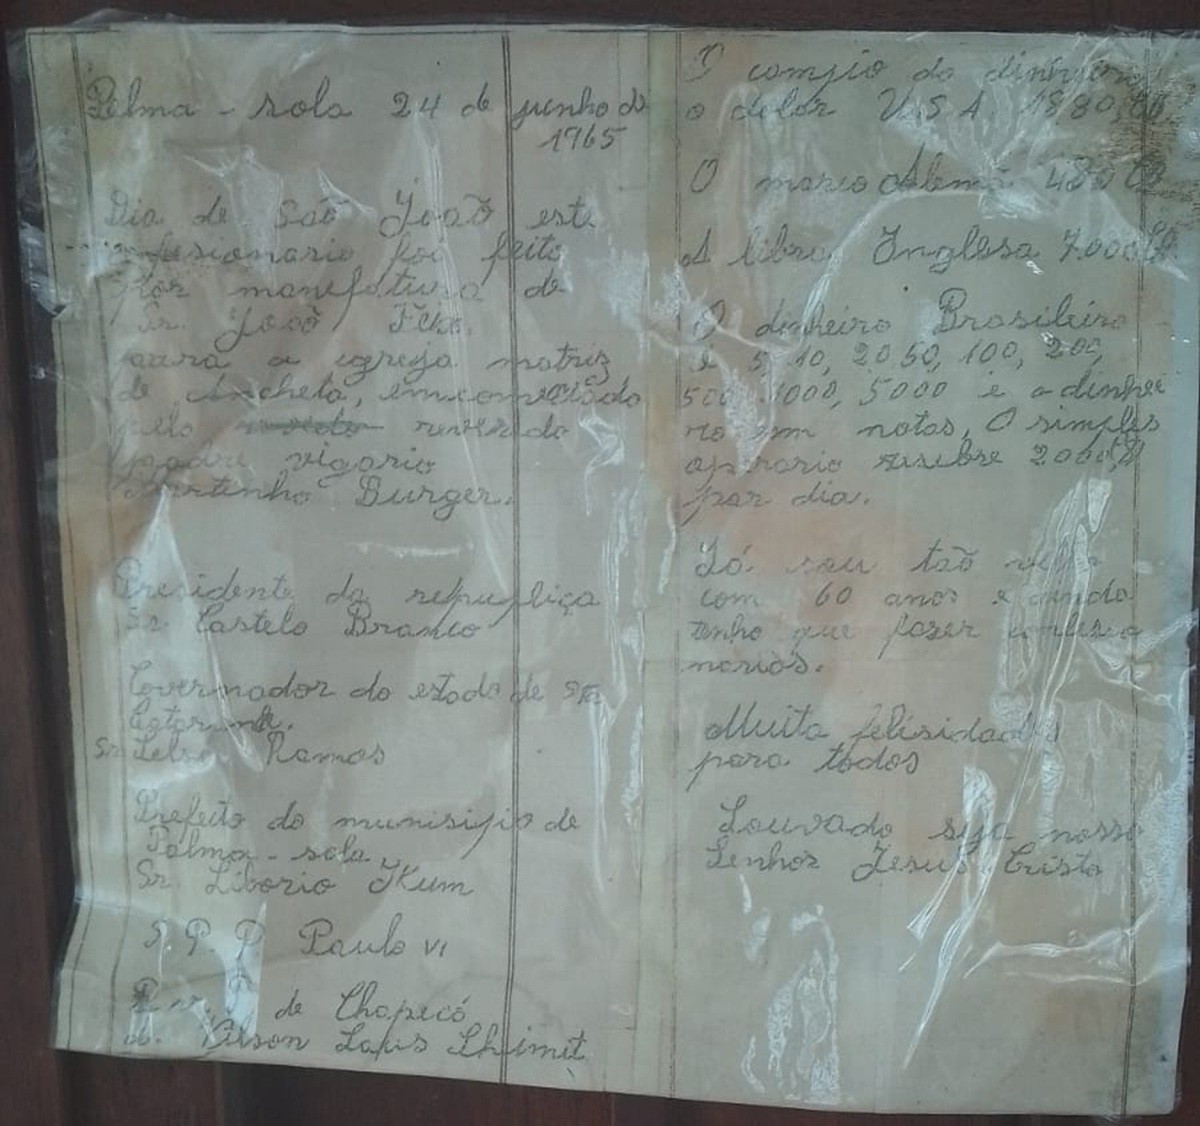 Palma - sola 24 de junho de
1965
Dia de São João este
confesionario foi feito
por manefatura de
Sr. João
para a egreja matriz
de Ancheta, emcomendado
pelo reverendo
padre vigario
Martinho Burger.
Presidente da repupliça
Sr. Castelo Branco
Governador do estado de Sta
Catarina.
Sr. Celso Ramos
Prefeito do munisipio de
Palma - sola
Sr. Liborio
P P Paulo VI
de Chapecó
Wilson Laus Shimit
O campio do dinheiro
o dolar U.S.A. 1880,00
O marco Alemã
A libra Inglesa 7.000
O dinheiro Brasileiro
é 5, 10, 20 50, 100, 200,
500 1000, 5000 é o dinhei
ro em notas, O simples
operario resebre 2000,
por dia.
Já sou tão velho
com 60 anos e ainda
tenho que fazer confesio
narios.
Muita felisidades
para todos
Louvado seja nosso
Senhor Jesus Cristo